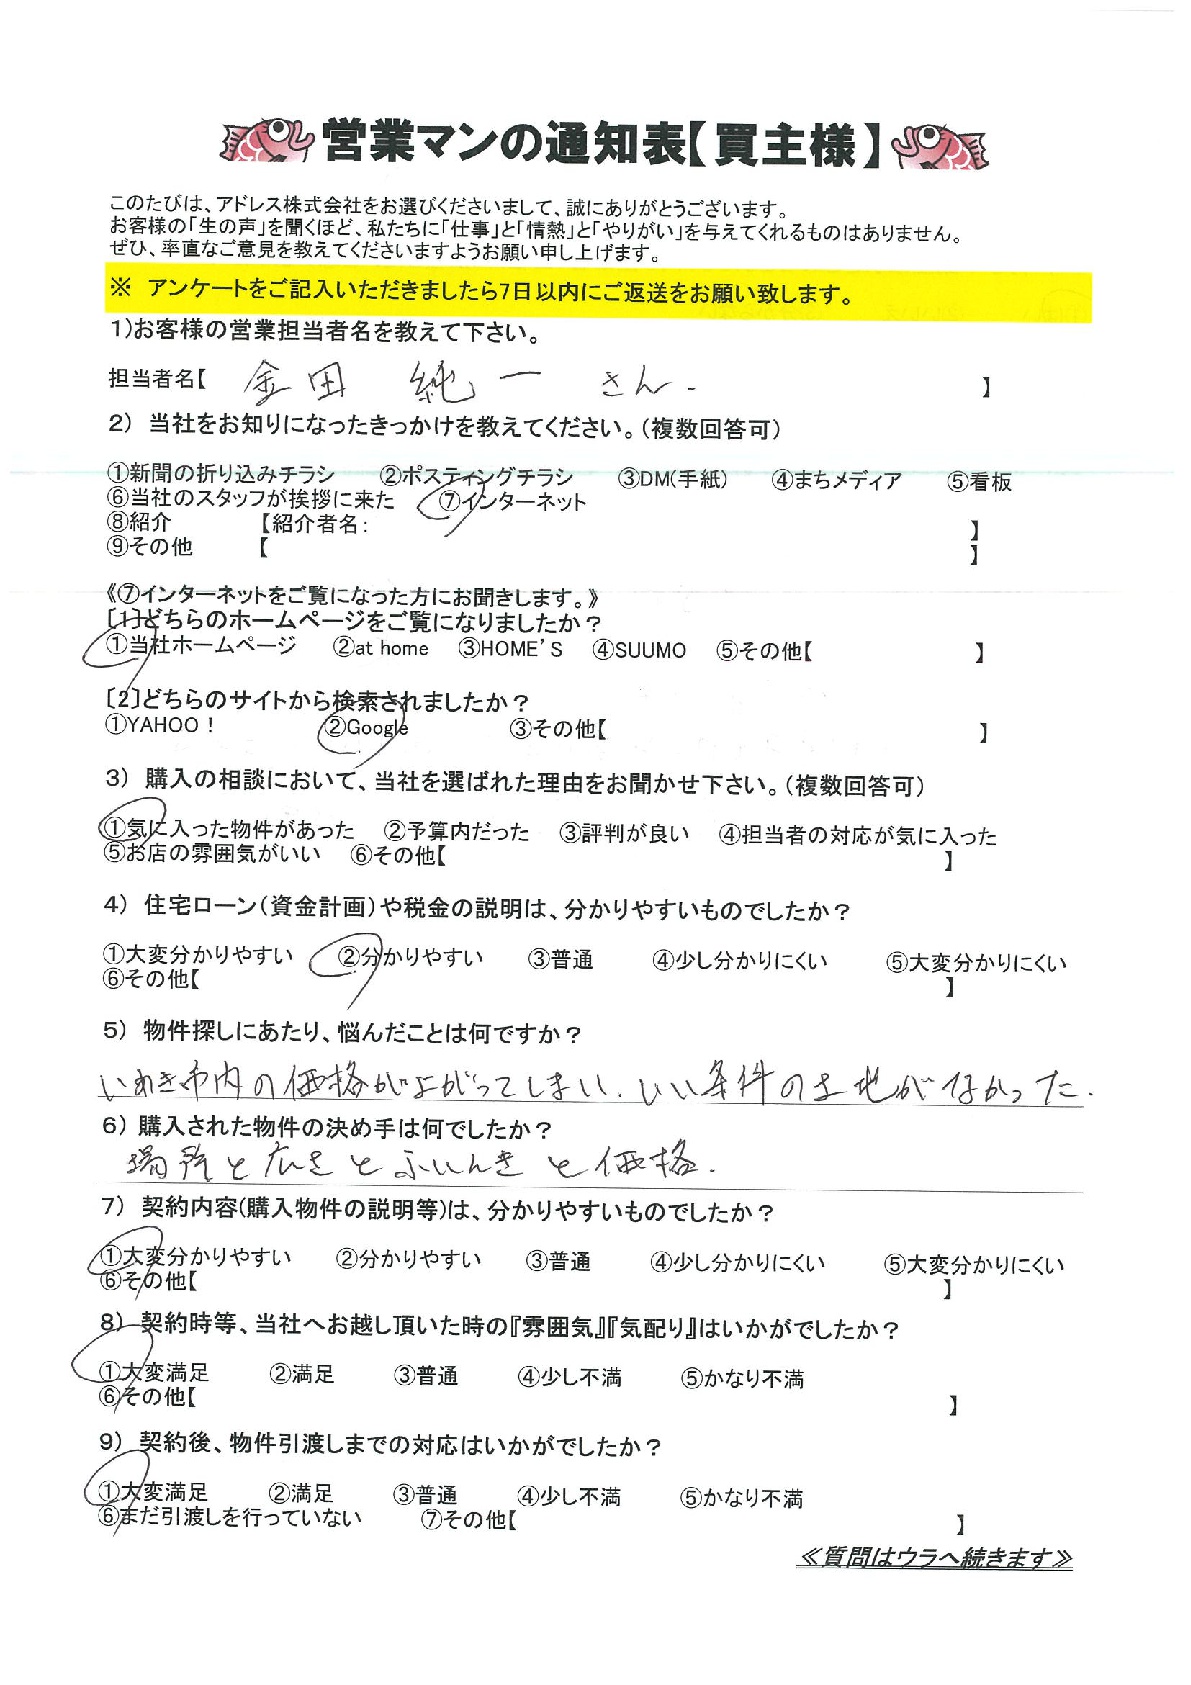 営業マンの通知表【買主様】
このたびは、アドレス株式会社をお選びくださいまして、誠にありがとうございます。
お客様の「生の声」を聞くほど、私たちに「仕事」と「情熱」と「やりがい」を与えてくれるものはありません。
ぜひ、率直なご意見を教えてくださいますようお願い申し上げます。
※ アンケートをご記入いただきましたら7日以内にご返送をお願い致します。
1)お客様の営業担当者名を教えて下さい。
担当者名【 金田 純一 さん. 】
2) 当社をお知りになったきっかけを教えてください。(複数回答可)
①新聞の折り込みチラシ ②ポスティングチラシ ③DM(手紙) ④まちメディア ⑤看板
⑥当社のスタッフが挨拶に来た ⑦インターネット
⑧紹介 【紹介者名: 】
⑨その他 【 】
《⑦インターネットをご覧になった方にお聞きします。》
〔1〕どちらのホームページをご覧になりましたか？
①当社ホームページ ②at home ③HOME'S ④SUUMO ⑤その他【 】
〔2〕どちらのサイトから検索されましたか？
①YAHOO！ ②Google ③その他【 】
3) 購入の相談において、当社を選ばれた理由をお聞かせ下さい。(複数回答可)
①気に入った物件があった ②予算内だった ③評判が良い ④担当者の対応が気に入った
⑤お店の雰囲気がいい ⑥その他【 】
4) 住宅ローン(資金計画)や税金の説明は、分かりやすいものでしたか？
①大変分かりやすい ②分かりやすい ③普通 ④少し分かりにくい ⑤大変分かりにくい
⑥その他【 】
5) 物件探しにあたり、悩んだことは何ですか？
いわき市内の価格が上がってしまい、いい条件の土地がなかった.
6) 購入された物件の決め手は何でしたか？
場所と広さとふいんきと価格.
7) 契約内容(購入物件の説明等)は、分かりやすいものでしたか？
①大変分かりやすい ②分かりやすい ③普通 ④少し分かりにくい ⑤大変分かりにくい
⑥その他【 】
8) 契約時等、当社へお越し頂いた時の『雰囲気』『気配り』はいかがでしたか？
①大変満足 ②満足 ③普通 ④少し不満 ⑤かなり不満
⑥その他【 】
9) 契約後、物件引渡しまでの対応はいかがでしたか？
①大変満足 ②満足 ③普通 ④少し不満 ⑤かなり不満
⑥まだ引渡しを行っていない ⑦その他【 】
≪質問はウラへ続きます≫